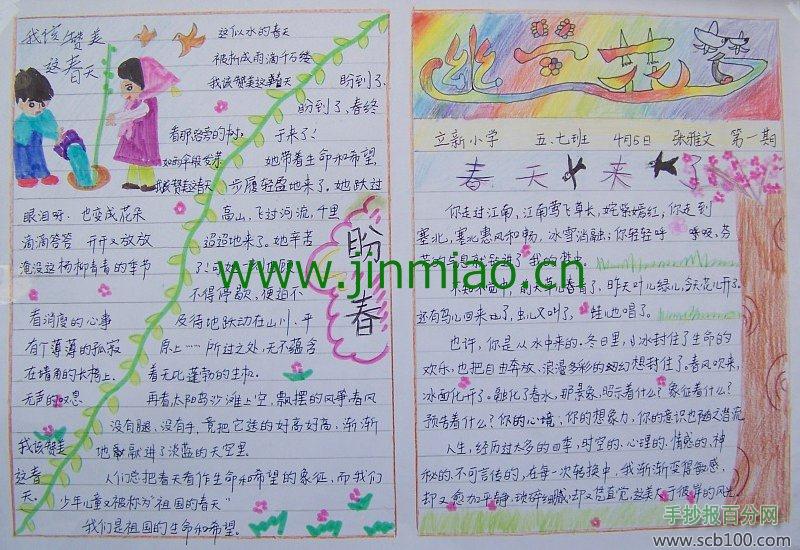 我该赞美
这春天
这似水的春天
被折成雨滴千万缕
我该赞美这春天
看那路旁的树
我该赞美这春天
眼泪呀 也变成花朵
滴滴答答 开开又放放
淹没这杨柳青青的季节
看消瘦的心事
有个薄薄的孤寂
在墙角的长椅上
无声的叹息
我该赞美
这春
天。
盼春
盼到了,
盼到了,春终
于来了!
她带着生命和希望,
步履轻盈地来了。她跃过
高山,飞过河流,千里
迢迢地来了。她辛苦
不得停歇,便迫不
及待地跃动在山川、平
原上……所过之处,无不蕴含
着无比蓬勃的生机。
再看太阳岛沙滩上空,飘摆的风筝,春风
没有腿、没有手,竟把它送的好高好高,渐渐
地融进了淡蓝的天空里。
人们总把春天看作生命和希望的象征,而我们
少年儿童又被称为“祖国的春天”
我们是祖国的生命和希望。
立新小学 五.七班 4月5日 张雅文 第一期
春天来了
你走过江南,江南莺飞草长,姹紫嫣红,你走到
塞北,塞北惠风和畅,冰雪消融;你轻轻呼 呼吸,芬
不知不觉中,前天草儿春青了,昨天叶儿绿儿,今天花儿开了。
还有鸟儿回来了,虫儿又叫了,蛙儿也唱了。
也许,你是从水中来的。冬日里,小冰封住了生命的
欢乐,也把自由奔放、浪漫多彩的幻想封住了。春风吹来,
冰面化开了。融化了春水,那景象,昭示着什么?象征着什么?
预告着什么?你的心境,你的想象力,你的意识也随又潜流
人生,经历过太多的四季,时空的、心理的、情感的、神
秘的、不可言传的,在每一次转换中,我渐渐变得敏感,
www.jinmiao.cn
手抄报百分网
www.scb100.com